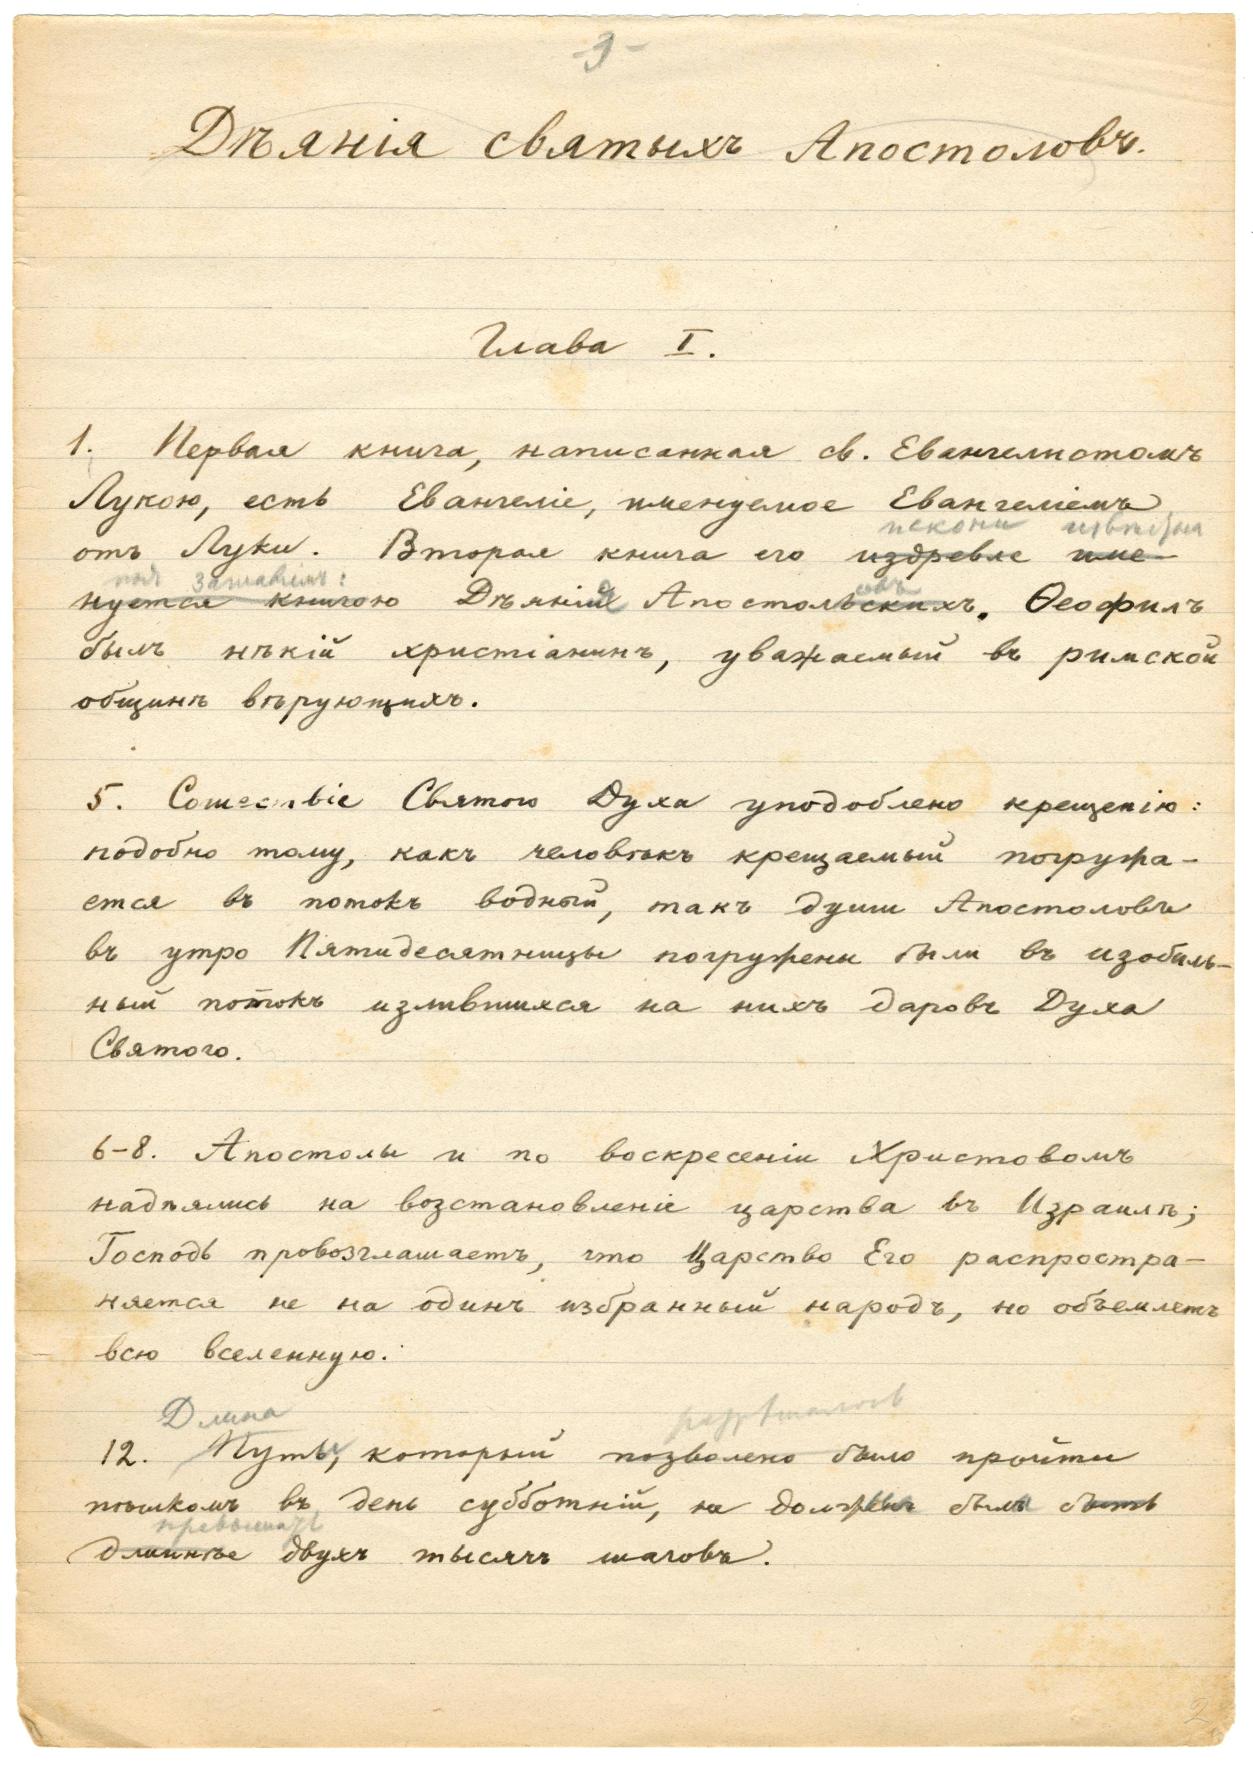 -3-
Дѣянія святыхъ Апостоловъ.
Глава I.
1. Первая книга, написанная св. Евангелистомъ
Лукою, есть Евангеліе, именуемое Евангеліемъ
искони извѣстна
отъ Луки. Вторая книга его издревле име-
подъ заглавіемъ:
нуется книгою Дѣяній Апостольскихъ. Ѳеофилъ
овъ
былъ нѣкій христіанинъ, уважаемый въ римской
общинѣ вѣрующихъ.
5. Сошествіе Святого Духа уподоблено крещенію:
подобно тому, какъ человѣкъ крещаемый погружа-
ется въ потокъ водный, такъ души Апостоловъ
въ утро Пятидесятницы погружены были въ изобиль-
ный потокъ излившихся на нихъ даровъ Духа
Святого.
6-8. Апостолы и по воскресеніи Христовомъ
надѣялись на возстановленіе царства въ Израилѣ;
Господь провозглашаетъ, что Царство Его распростра-
няется не на одинъ избранный народъ, но объемлетъ
всю вселенную.
Длина разрѣшалось
12. Путь, который позволено было пройти
пѣшкомъ въ день субботній, не долженъ былъ быть
превышать
длиннѣе двухъ тысячъ шаговъ.
2